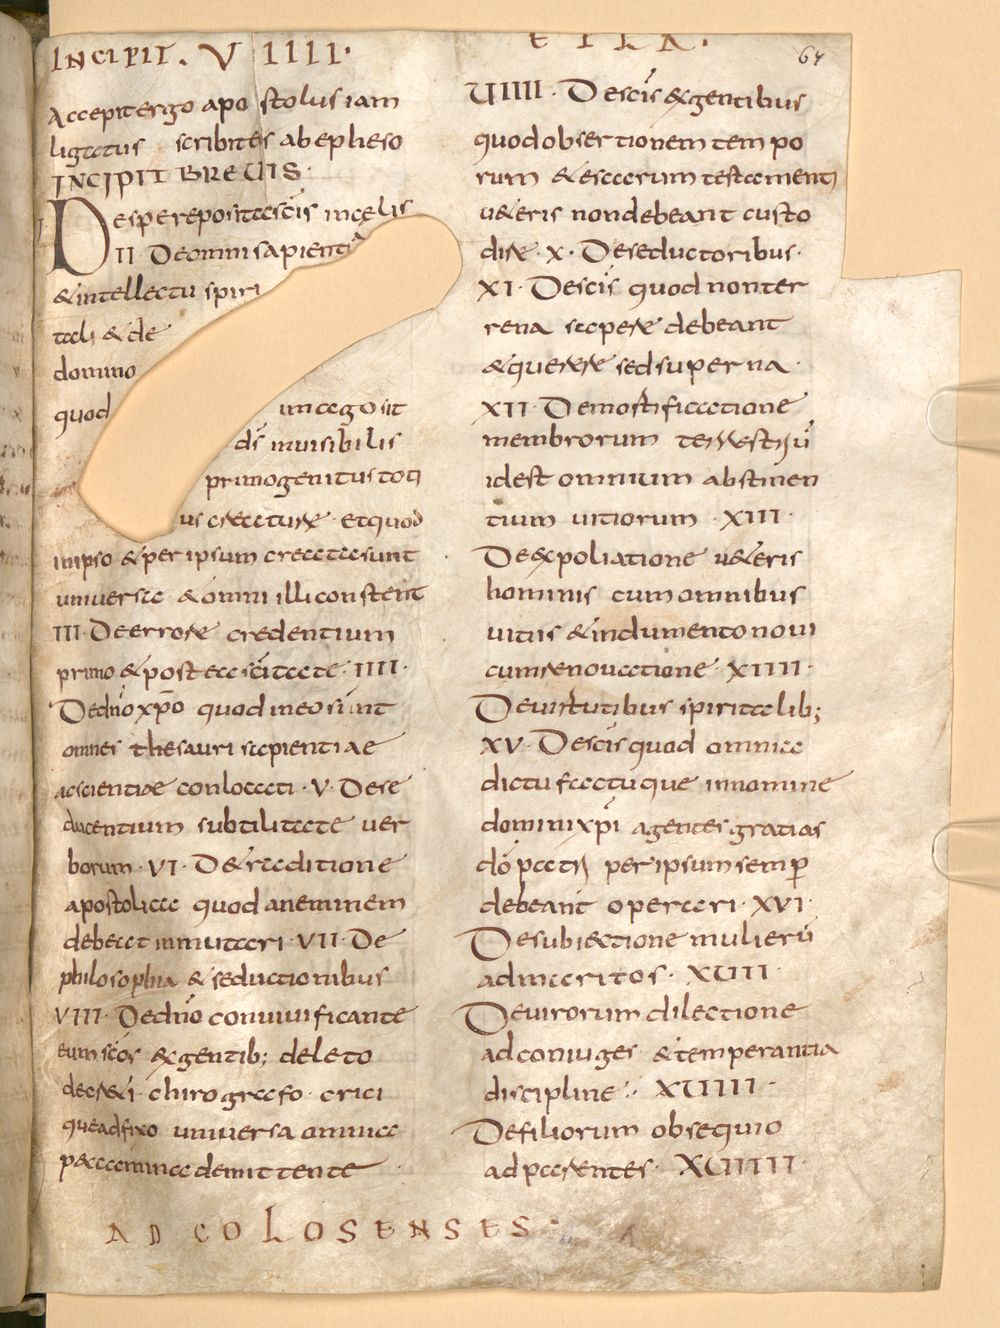 INCIPIT . V IIII ·
Accepit ergo apostolus iam
ligatus scribit eis ab epheso
INCIPIT BREVIS ·
De spe reposita scis in celis
II De omni sapientia
& intellectu spiri
tali & de
domino
quod imago sit
di invisibilis
primogenitus toti
us creature · et quod
in ipso & per ipsum creata sunt
universa & omni illi constent
III · De errore credentium
primo & postea scitate · IIII ·
De dno xpo quod in eo sunt
omnes thesauri sapientiae
ac scientiae conlocati · V · De se
ducentium subtilitate ver
borum · VI · De traditione
apostolica quod a nemine
debeat inmutari · VII · De
philosophia & seductionibus
VIII · De dno convivificante
eum scos ex gentib; deleto
decreti · chirografo · crici
que adfixo universa omnia
peccamina demittente
AD COLOSENSES ·
ETLA ·
64
VIIII · De scis ex gentibus
quod observtionem tempo
rum & escarum testamenti
veteris non debeant custo
dire · X · De seductoribus ·
XI · De scis quod non ter
rena sapere debeant
& querere sed superna ·
XII · De mortificatione
membrorum terrestriu
id est omnium abstinen
tium vitiorum · XIII ·
De expoliatione veteris
hominis cum omnibus
vitiis & indumento novi
cum renovatione · XIIII ·
De virtutibus spiritalib;
XV · De scis quod omnia
dictu factuque in nomine
domini xpi agentes gratias
do patri per ipsum semp
debeant operari · XVI ·
De subiectione mulieru
ad maritos · XVII ·
De virorum dilectione
ad coniuges & temperantia
discipline · XVIII ·
De filiorum obsequio
ad parentes · XVIIII ·